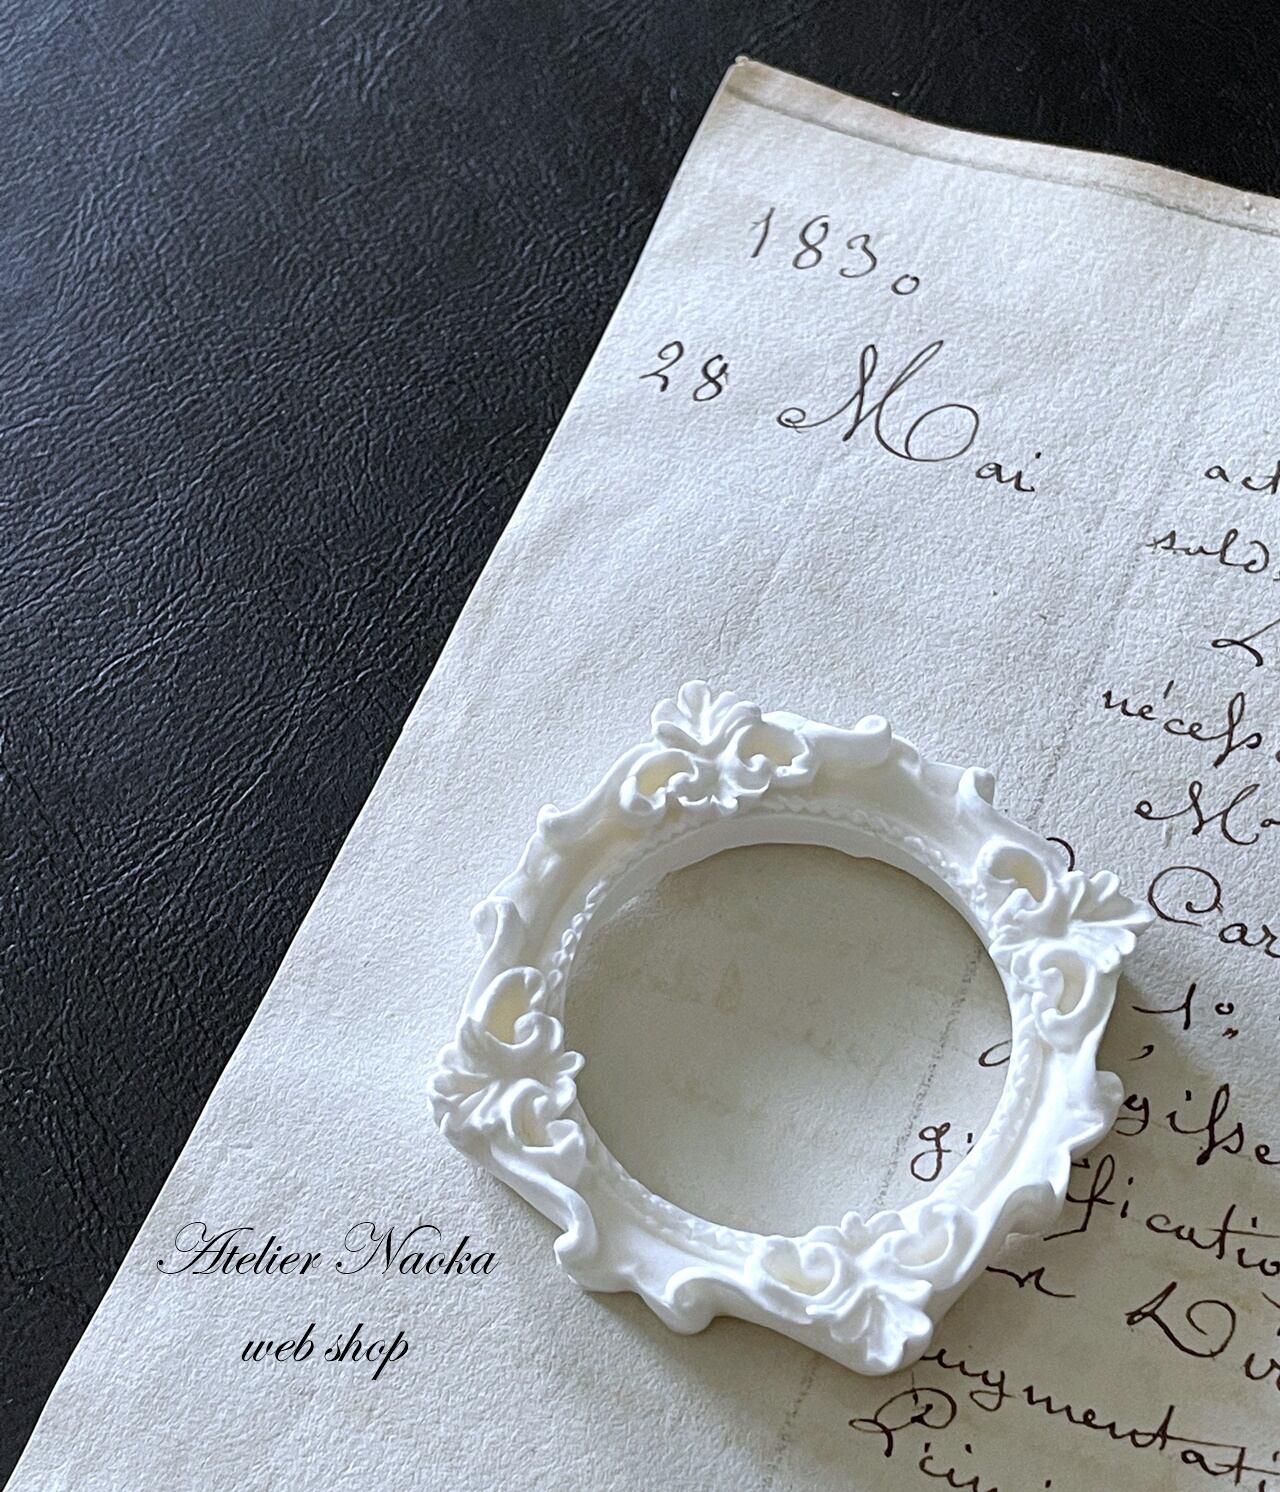 1830
28 Mai
act
sold
L
nécess
M
Car
1º
gisse
fication
Div
augmentati
Princi
Atelier Naoka
web shop